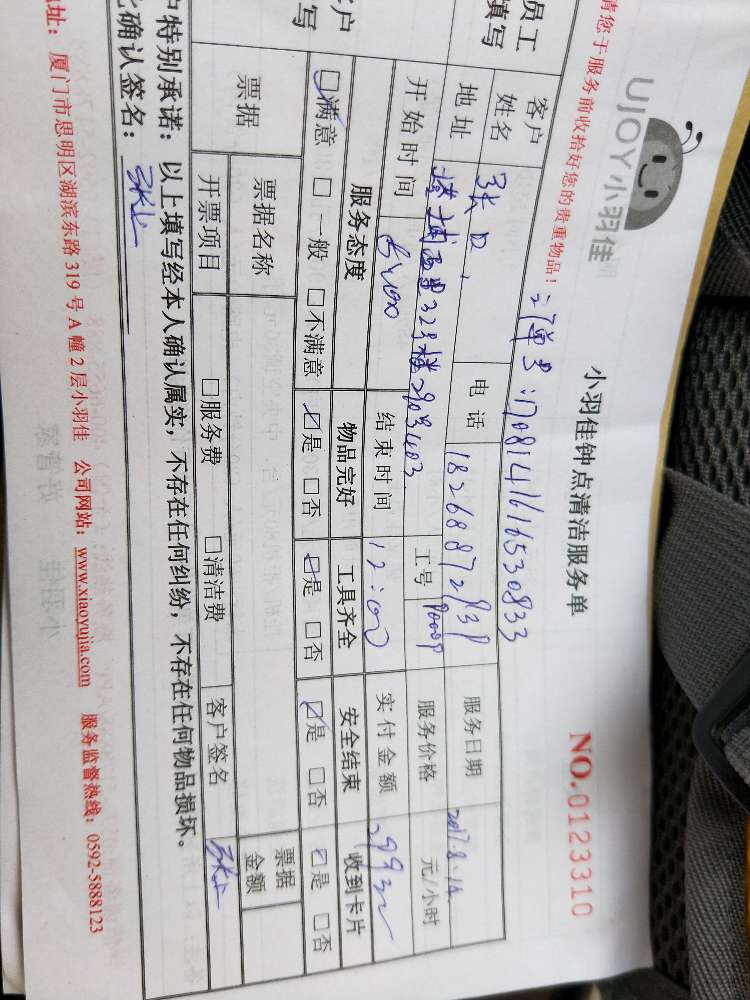 请您于服务前收拾好您的贵重物品!
UJOY小羽佳
小羽佳钟点清洁服务单
NO.0123310
订单号:1708141616530833
员工
填写
客户
姓名
张
电话
服务日期
2017.8.14
地址
工号
服务价格
元/小时
开始时间
结束时间
12:00
实付金额
户
写
服务态度
物品完好
工具齐全
安全结束
收到卡片
满意 一般 不满意
是 否
是 否
是 否
是 否
票据
票据名称
票据
金额
开票项目
服务费
清洁费
客户签名
户特别承诺:以上填写经本人确认属实,不存在任何纠纷,不存在任何物品损坏。
确认签名:
址:厦门市思明区湖滨东路319号A幢2层小羽佳 公司网站:www.xiaoyujia.com 服务监督热线:0592-5888123